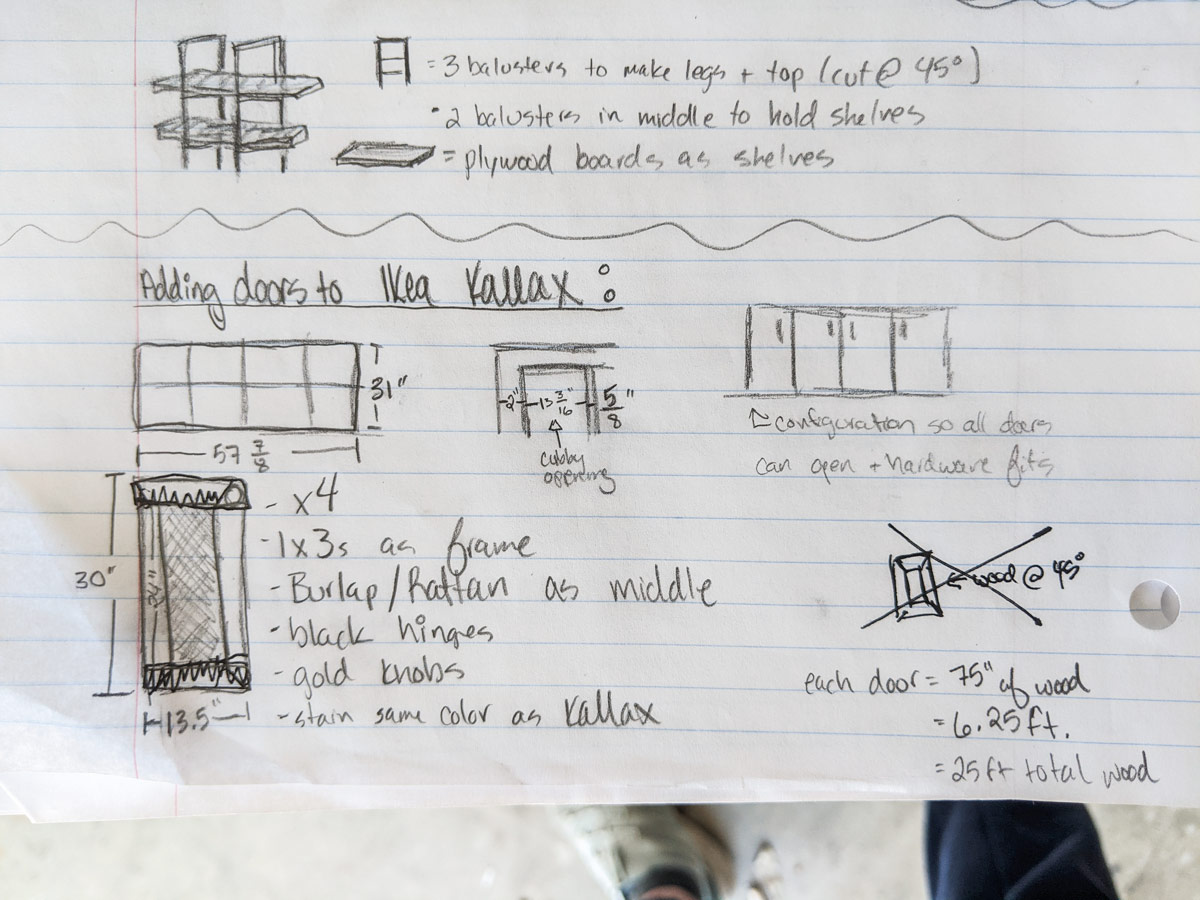 = 3 balusters to make legs + top (cut @ 45°)
· 2 balusters in middle to hold shelves
= plywood boards as shelves
Adding doors to IKea Kallax :
31"
57 7/8
2"
13 3/16"
5/8"
cubby
opening
configuration so all doors
can open + hardware fits
30"
24"
13.5"
- x4
- 1x3s as frame
- Burlap/Rattan as middle
- black hinges
- gold knobs
- stain same color as Kallax
wood @ 45°
each door = 75" of wood
= 6.25 ft.
= 25 ft total wood